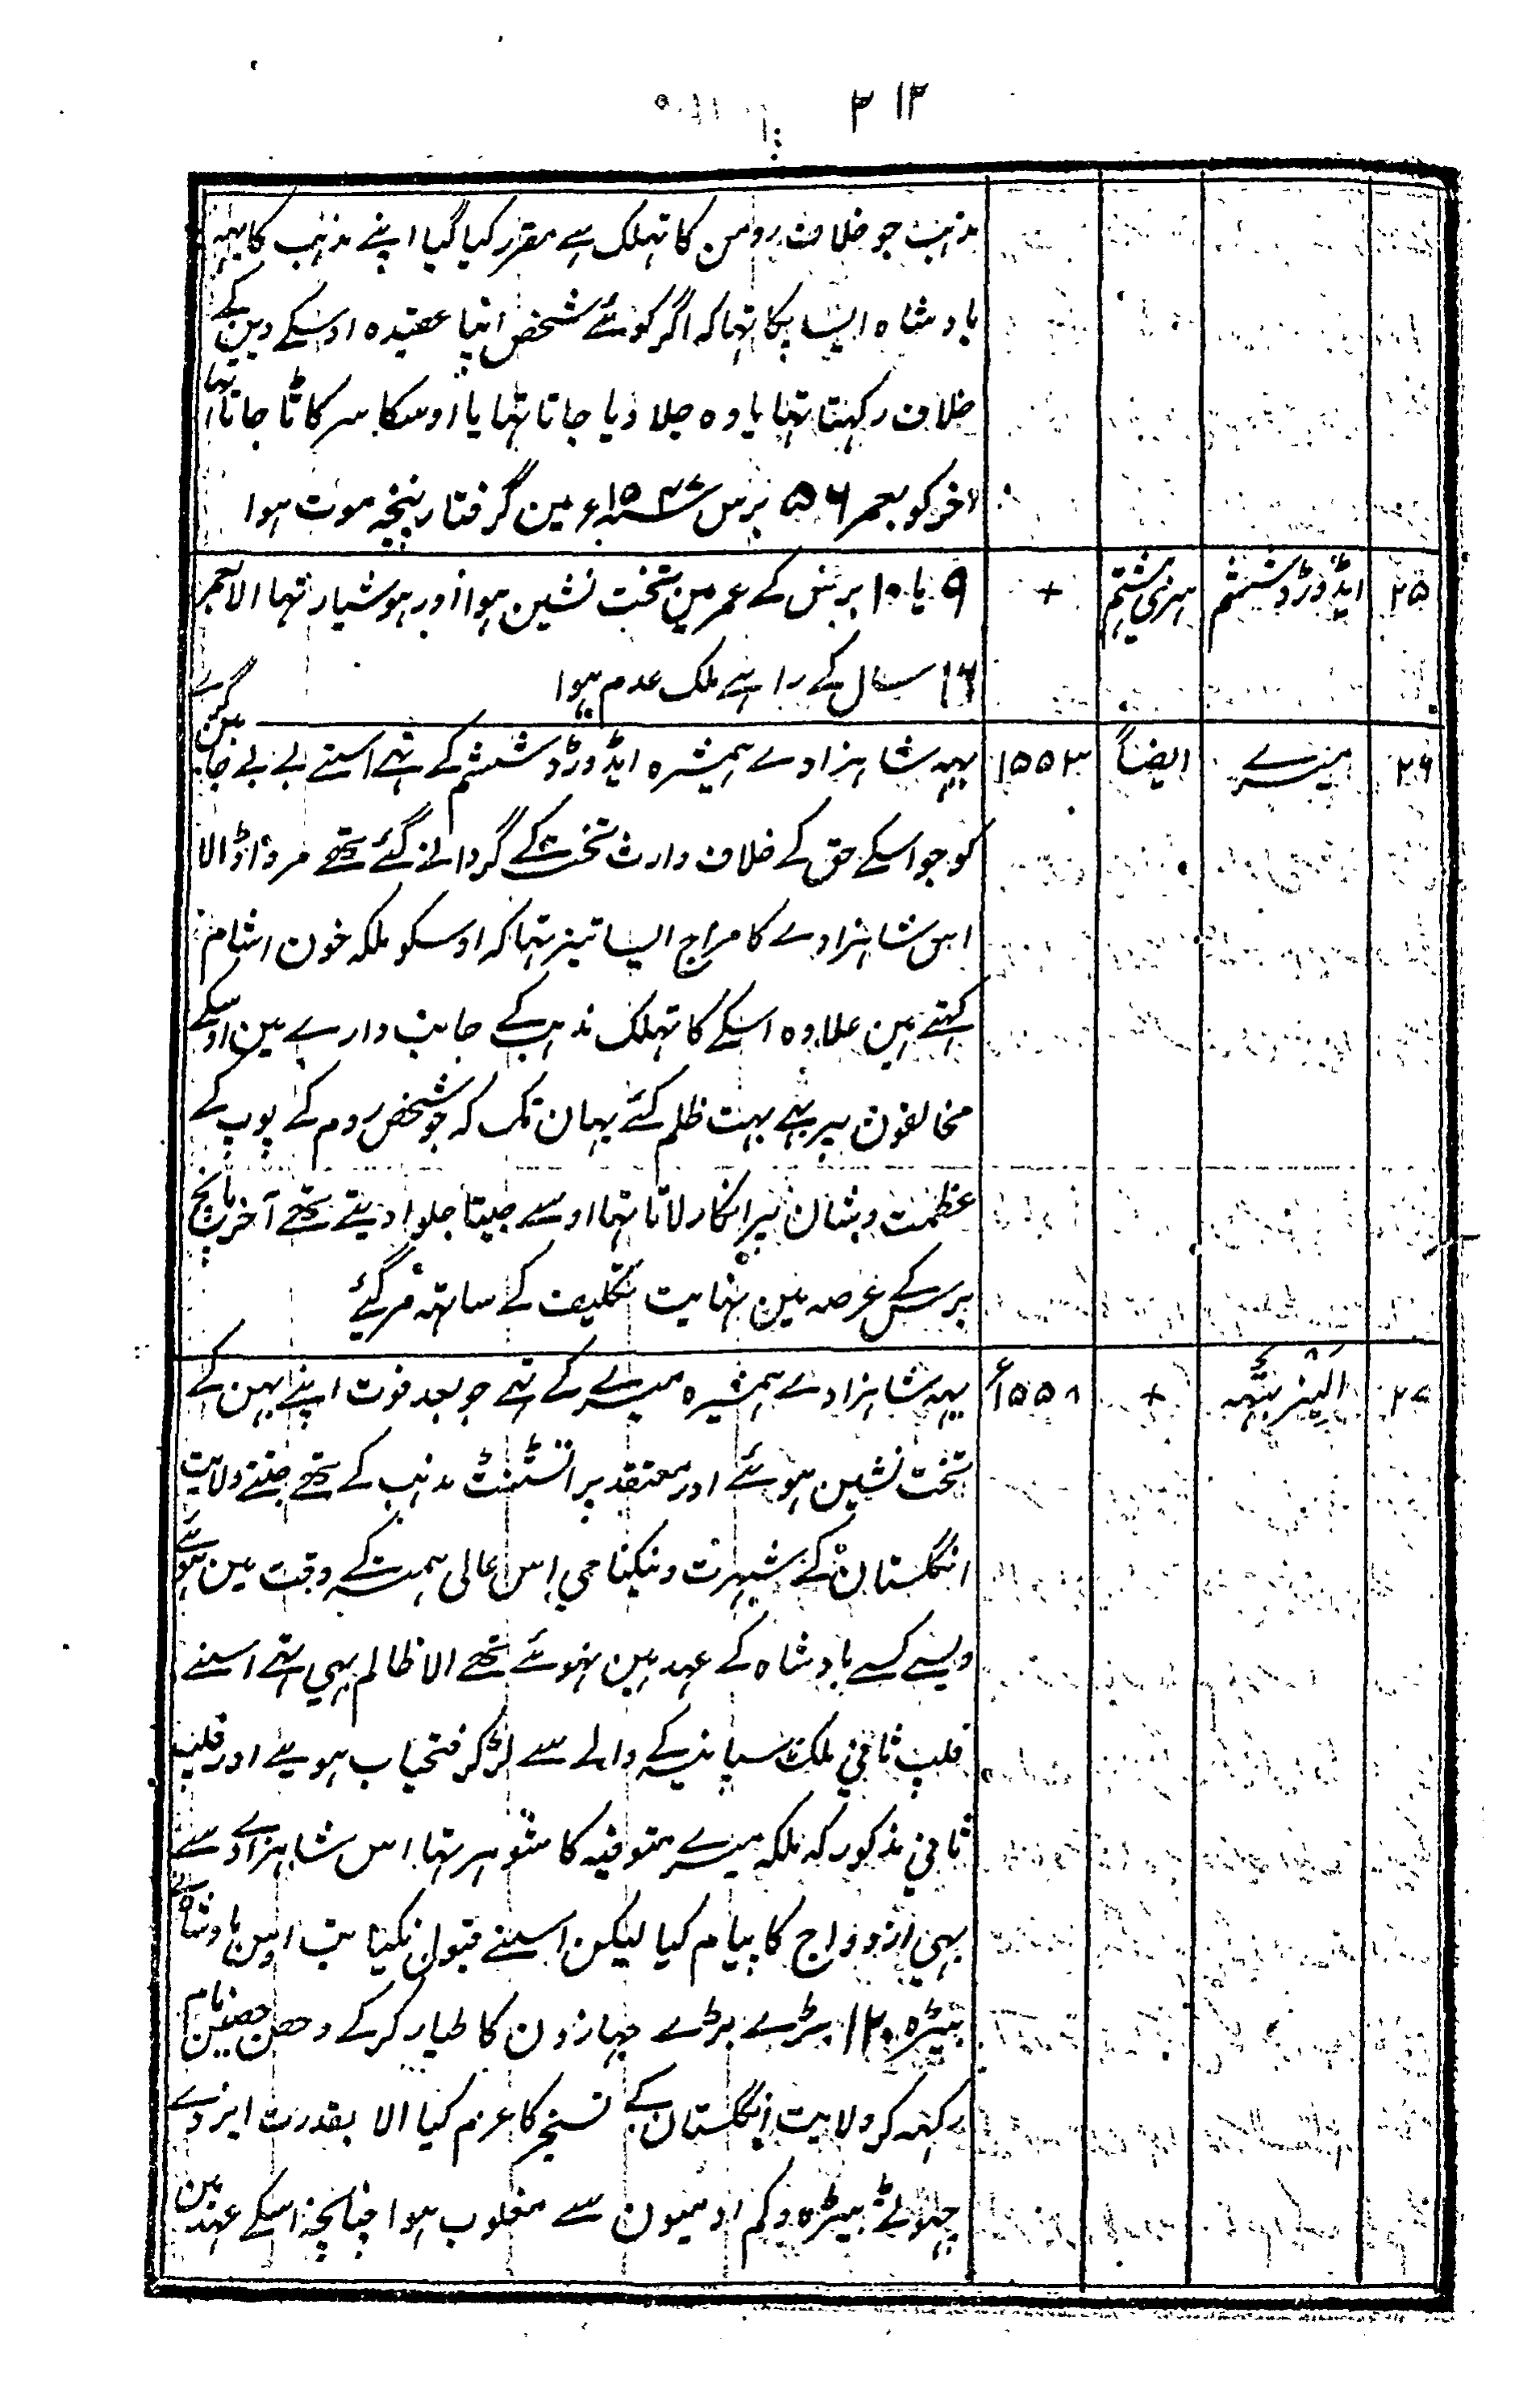 ۲۱۲
مذہب جو خلاف رومن کاتہلک سے مقرر کیا گیا اپنے مذہب کا یہہ
بادشاہ ایسا پکا تہا کہ اگر کوئے شخص اپنا عقیدہ اوسکے دین کے
خلاف رکہتا تہا یا وہ جلا دیا جاتا تہا یا اوسکا سر کاٹا جاتا تہا
لاخر کو بعمر ۵۶ برس ۱۵۴۷ء مین گرفتار پنجہ موت ہوا
۲۵ ایڈورڈ ششم ہنری ہشتم + ۹ یا ۱۰ برس کے عمر مین تخت نشین ہوا اور ہوشیار تہا الا بعمر
۱۶ سال کے راہے ملک عدم ہوا
۲۶ میرے ایضاً ۱۵۵۳ یہہ شاہزادے ہمشیرہ ایڈورڈ ششم کے تہے اسنے بے بے جان گرے
کو جو اسکے حق کے خلاف وارث تخت کے گردانے گئے تھے مروا ڈالا
اس شاہزادے کا مزاج ایسا تیز تہا کہ اوسکو ملکہ خون اشام
کہتے ہین علاوہ اسکے کاتہلک مذہب کے جانب دارے مین اوسکے
مخالفون پر بہے بہت ظلم کئے یہان تک کہ جو شخص روم کے پوپ کے
عظمت و شان پر انکار لاتا تہا اوسے جیتا جلوا دیتے تھے آخر پانچ
برس کے عرصہ مین نہایت تکلیف کے ساتہہ مر گئے
۲۷ الیزبتہہ + ۱۵۵۸ء یہہ شاہزادے ہمشیرہ میرے کے تہے جو بعد فوت اپنے بہن کے
تخت نشین ہوئے اور معتقد پراٹسٹنٹ مذہب کے تھے جتنے ولایت
انگلستان کے شہرت و نیکنامی اس عالی ہمت کے وقت مین ہوئے
ویسے کسے بادشاہ کے عہد مین نہوئے تھے الا ظالم بہی تہے اسنے
فلپ ثانی ملک سپانیہ کے والے سے لڑکر فتحیاب ہوئے اور فلپ
ثانی مذکور کہ ملکہ میرے متوفیہ کا شوہر تہا اس شاہزادے سے
بہی ازدواج کا پیام کیا لیکن اسنے قبول نکیا تب اوس بادشاہ نے
بیڑہ ۱۲۰ بڑے بڑے جہازون کا طیار کرکے و حصن حصین نام
رکہہ کر ولایت انگلستان کے تسخیر کا عزم کیا الا بقدرت ایزدے
چہوٹے بیڑہ و کم ادمیون سے مغلوب ہوا چنانچہ اسکے عہد مین